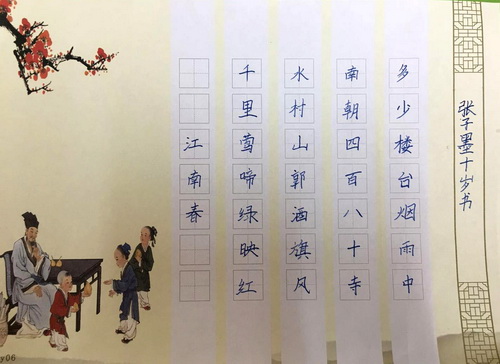 江南春
千里莺啼绿映红
水村山郭酒旗风
南朝四百八十寺
多少楼台烟雨中
张子墨十岁书
y06